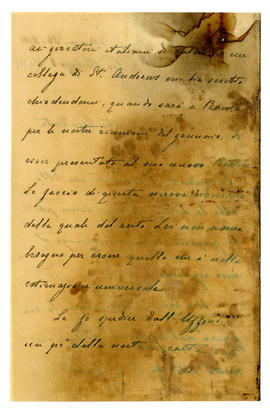 ai giocatori italiani di un
collega di St. Andrews mi ha scritto
chiedendomi, quando sarò a Roma
per le nostre riunioni del gennaio, di
esser presentato al suo nuovo
Le faccio di questa nuova
della quale del resto Lei non aveva
bisogno per essere quello che è nella
estimazione universale.
Le fo spedire dall'
un po' della nostra carta